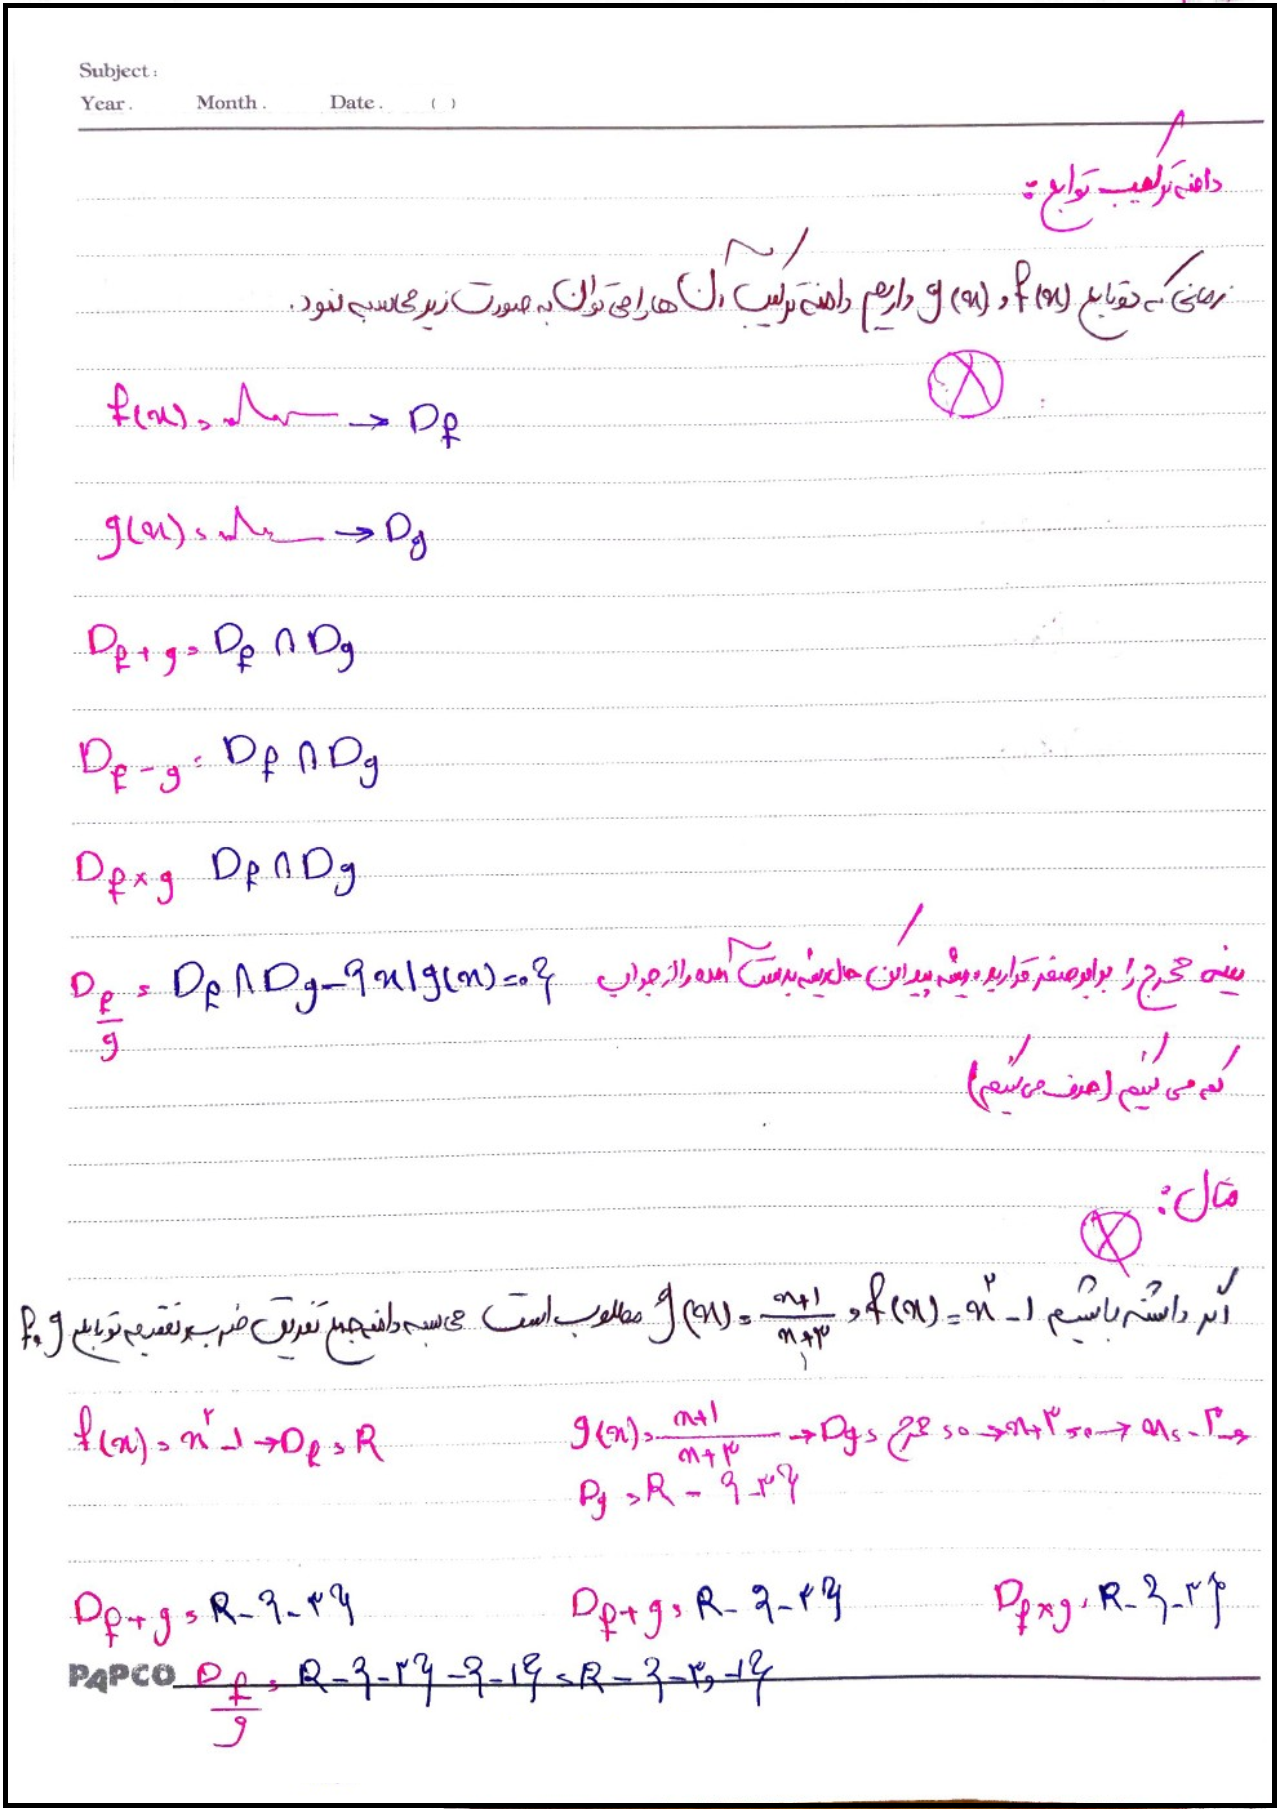 Subject:
Year. Month. Date. ( )
دامنه ترکیب توابع:
زمانی که دو تابع f(x) و g(x) داریم دامنه ترکیب آن ها را می توان به صورت زیر محاسبه نمود.
f(x) = → Df
g(x) = → Dg
Df+g = Df ∩ Dg
Df-g = Df ∩ Dg
Df×g Df ∩ Dg
Df/g = Df ∩ Dg - {x|g(x)=0} یعنی مخرج را برابر صفر قرار بده ریشه پیدا کن حال ریشه بدست آمده را از جواب
کم می کنیم (حذف می کنیم)
مثال:
اگر داشته باشیم f(x) = x² - 1 و g(x) = x+1/x+3 مطلوب است محاسبه دامنه جمع تفریق ضرب و تقسیم توابع f و g
f(x) = x² - 1 → Df = R g(x) = x+1/x+3 → Dg = مخرج = 0 → x+3 = 0 → x = -3 →
Dg = R - {-3}
Df+g = R - {-3} Df+g = R - {-3} Df×g = R - {-3}
PAPCO Df/g = R - {-3} - {-1} = R - {-3 و -1}